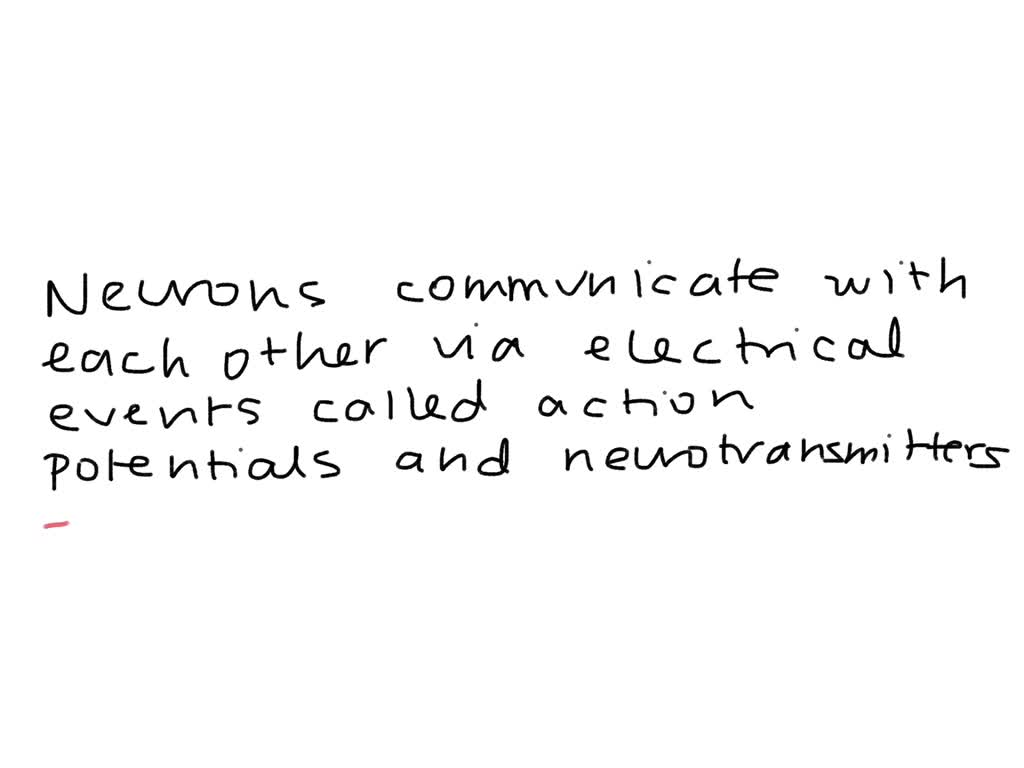 Neurons communicate with
each other via electrical
events called action
potentials and neurotransmitters